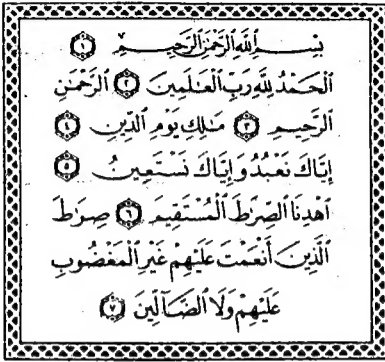 بِسْمِ ٱللَّهِ ٱلرَّحْمَٰنِ ٱلرَّحِيمِ ١
ٱلْحَمْدُ لِلَّهِ رَبِّ ٱلْعَٰلَمِينَ ٢ ٱلرَّحْمَٰنِ
ٱلرَّحِيمِ ٣ مَٰلِكِ يَوْمِ ٱلدِّينِ ٤
إِيَّاكَ نَعْبُدُ وَإِيَّاكَ نَسْتَعِينُ ٥
ٱهْدِنَا ٱلصِّرَٰطَ ٱلْمُسْتَقِيمَ ٦ صِرَٰطَ
ٱلَّذِينَ أَنْعَمْتَ عَلَيْهِمْ غَيْرِ ٱلْمَغْضُوبِ
عَلَيْهِمْ وَلَا ٱلضَّآلِّينَ ٧